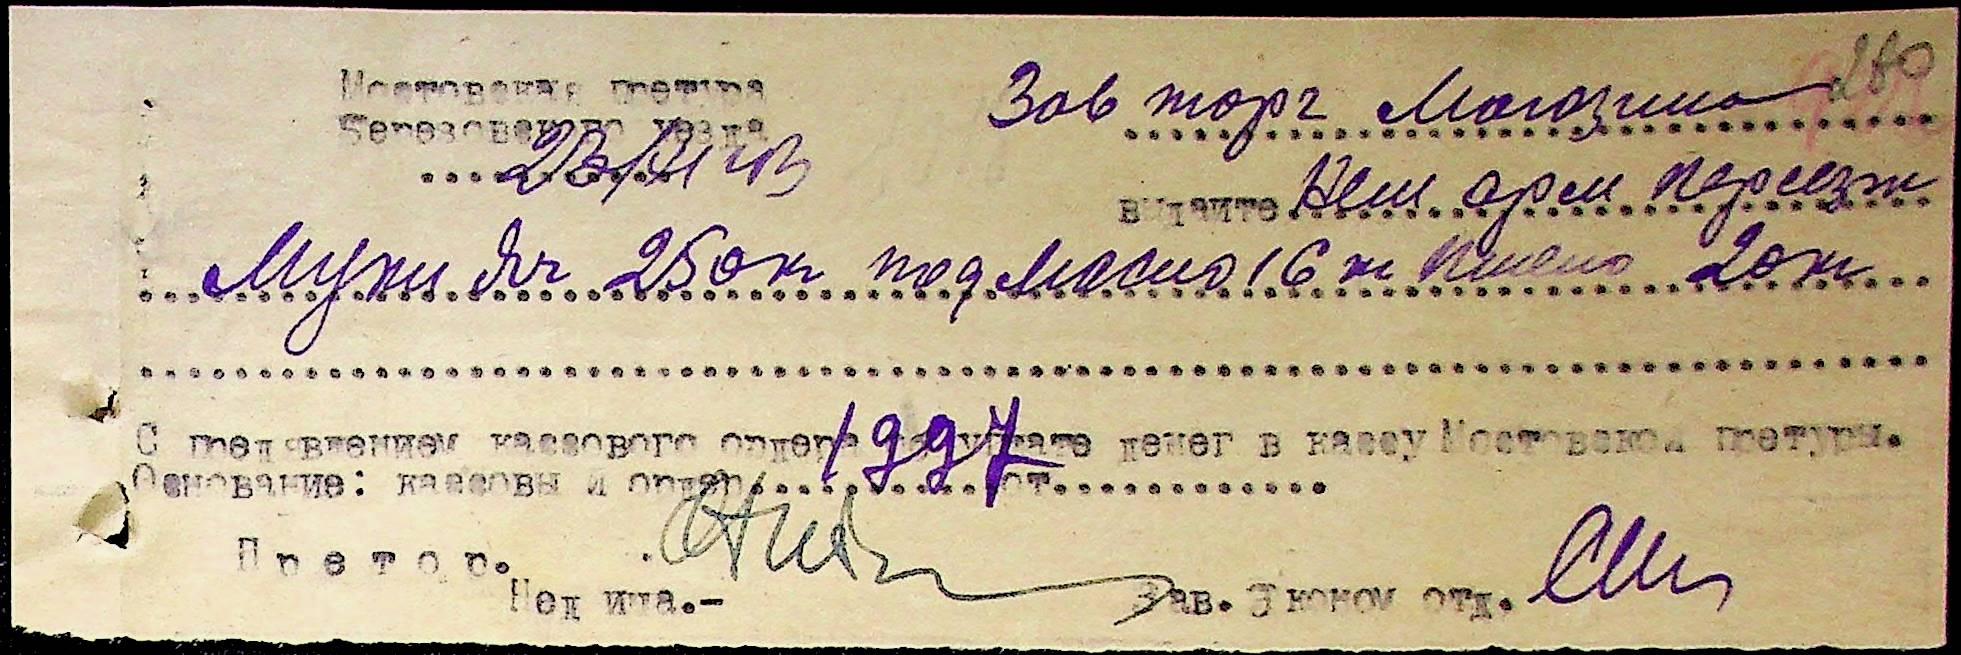 Мостовская претура
Березовского уезда
Зав торг Магозина
выдайте Нем арм переезж
Муки Яч 250 кг под масло 16 кг Пшено 20 кг
С пред'явлением кассового ордера об уплате денег в кассу Мостовской претуры.
Основание: кассовый ордер 1997 от
Претор.
Недича.-
Зав. Эконом отд.